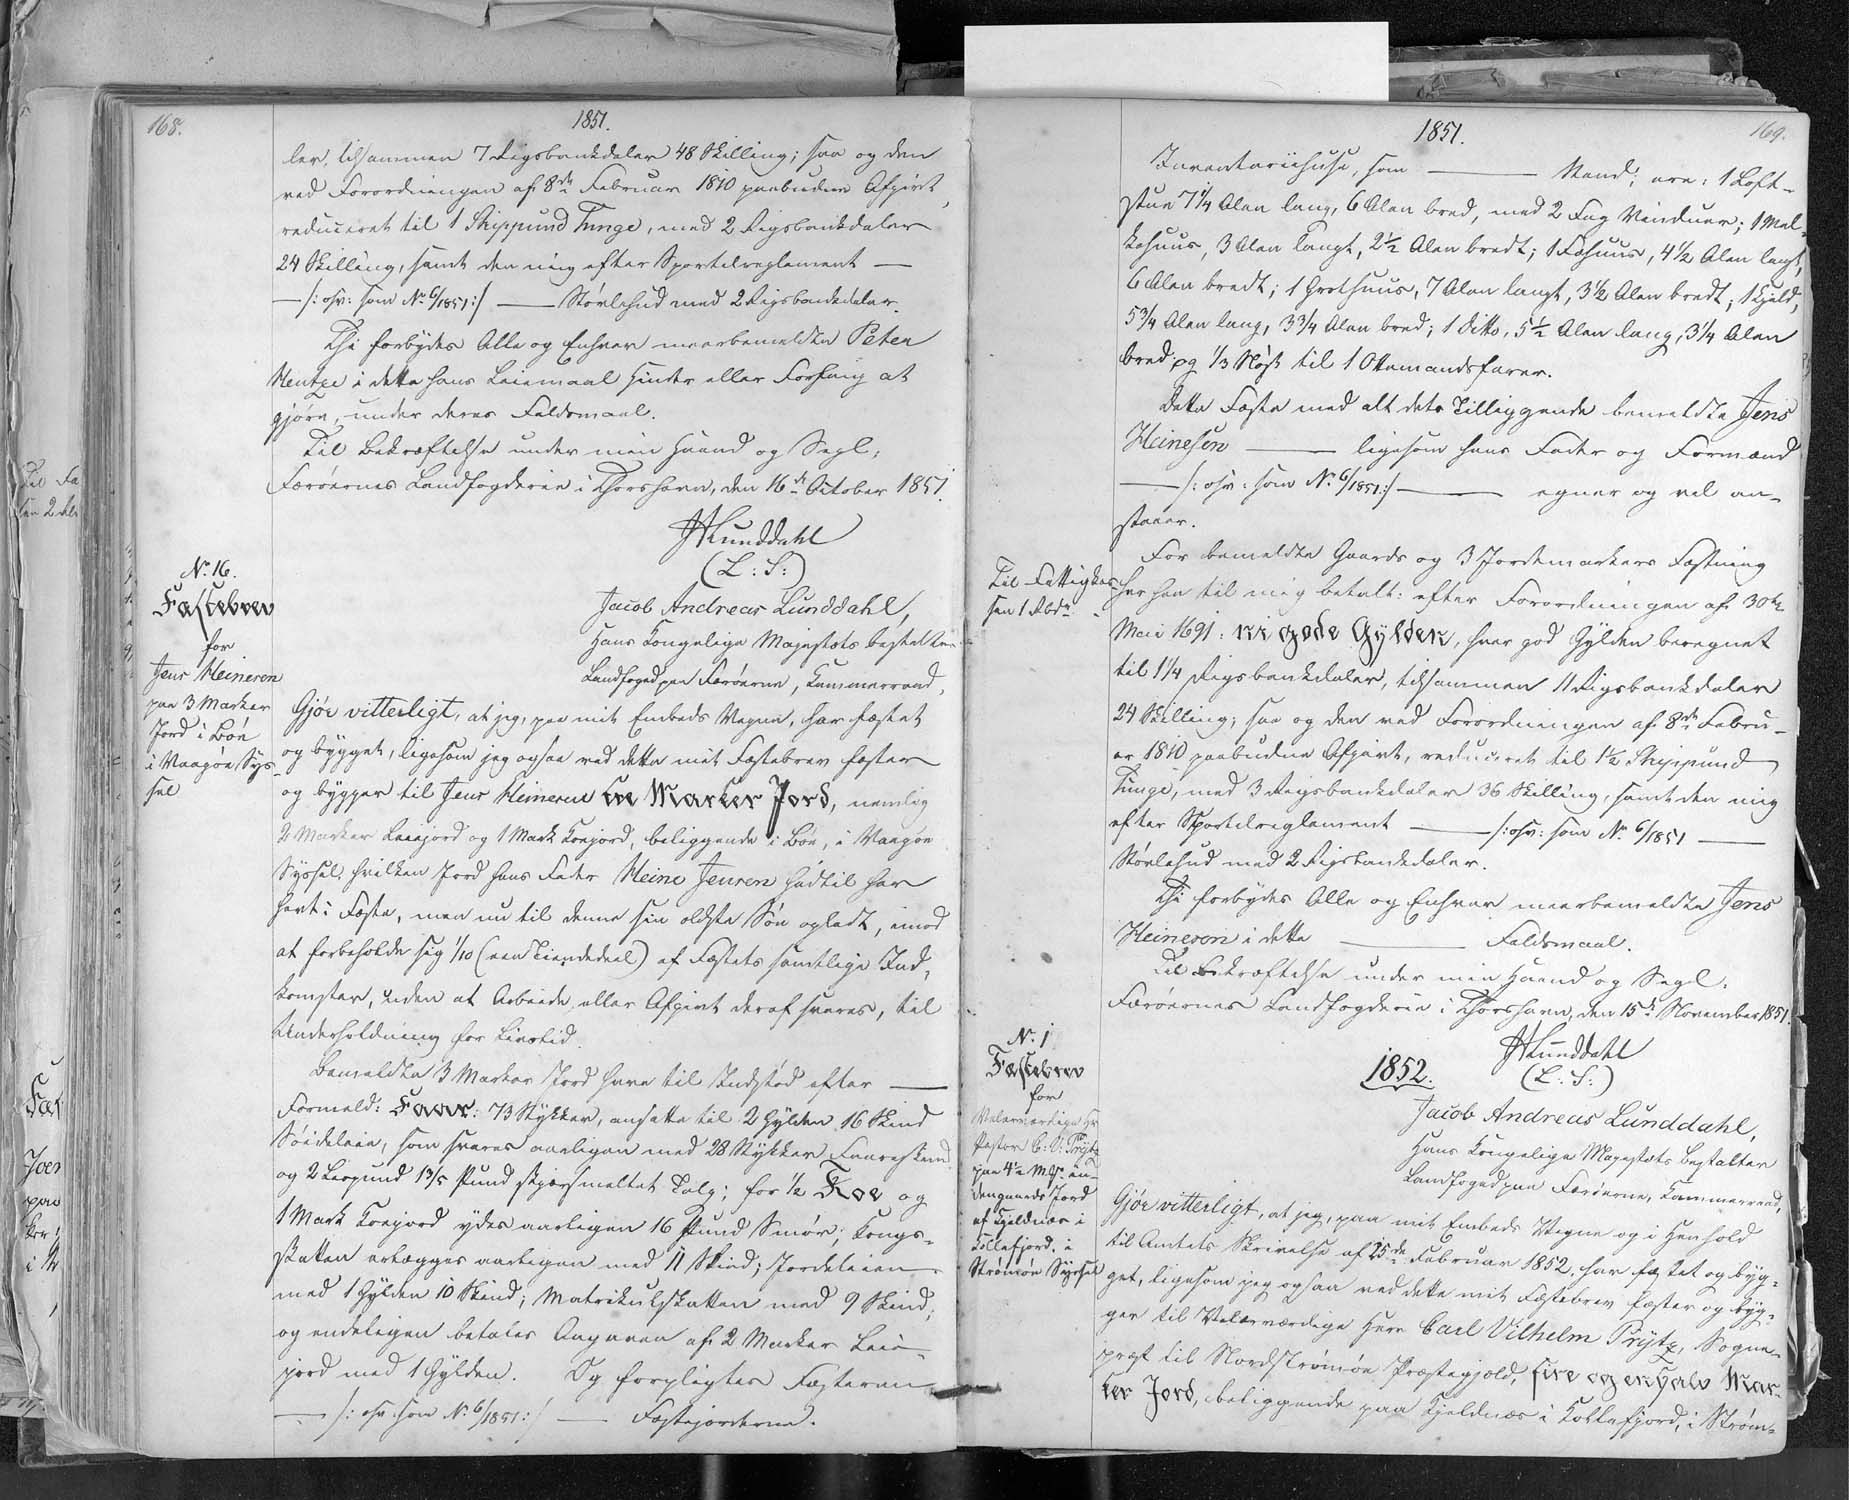 168.
1851.
ler, tilsammen 7 Rigsbankdaler 48 Skilling; saa og den
ved Forordningen af 8de Februar 1810 paabudne Afgivt,
reduceret til 1 Skippund Tunge, med 2 Rigsbankdaler
24 Skilling, samt den mig efter Sportelreglement —
— /: osv: som No 6/1851 :/ — Støvlehud med 2 Rigsbankdaler.
Thi forbydes Alle og Enhver meerbemeldte Peter
Hentze i dette hans Leiemaal Hinder eller Forfang at
gjøre, under deres Faldsmaal.
Til Bekræftelse under min Haand og Segl.
Færøernes Landfogderie i Thorshavn, den 16de October 1851.
HLunddahl
(L: S:)
No 16.
Fæstebrev
for
Jens Heinesen
paa 3 Marker
Jord i Bøe
i Vaagøe Sys-
sel
Jacob Andreas Lunddahl,
Hans Kongelige Majestæts bestalter
Landfoged paa Færøerne, Kammerraad,
Gjør vitterligt, at jeg, paa mit Embeds Vegne, har fæstet
og bygget, ligesom jeg ogsaa ved dette mit Fæstebrev fæster
og bygger til Jens Heinesen tre Marker Jord, nemlig
2 Marker Leiejord og 1 Mark Koejord, beliggende i Bøe, i Vaagøe
Syssel, hvilken Jord hans Fader Heine Jensen hidtil har
havt i Fæste, men nu til denne sin ældste Søn opladt, imod
at forbeholde sig 1/10 (een Tiendedeel) af Fæstets samtlige Ind-
komster, uden at Arbeide eller Afgivt deraf svares, til
Underholdning for Livstid.
Bemeldte 3 Marker Jord have til Indstød efter —
Formeld: Faar: 73 Stykker, ansatte til 2 Gylden 16 Skind
Søideleie, som svares aarligen med 28 Stykker Faareskind
og 2 Lispund 1 3/5 Pund skjærsmeltet Talg; for 1/2 Koe og
1 Mark Koejord ydes aarligen 16 Pund Smør; Konge-
skatten erlægges aarligen med 11 Skind; Jordeleien
med 1 Gylden 10 Skind; Matrikulskatten med 9 Skind;
og endeligen betales Arguren af 2 Marker Leie-
jord med 1 Gylden. Og forpligtes Fæsteren
— /: osv: som No 6/1851 :/ — Fæstejorderne.
169.
1851.
Inventariihuse, som — Stand; ere: 1 Loft-
stue 7 1/4 Alen lang, 6 Alen bred, med 2 Fag Vinduer; 1 Mel-
kehuus, 3 Alen langt, 2 1/2 Alen bredt; 1 Fæhuus, 4 1/2 Alen langt,
6 Alen bredt; 1 Grothuus, 7 Alen langt, 3 1/2 Alen bredt; 1 Hjeld,
5 3/4 Alen lang, 3 3/4 Alen bred; 1 ditto, 5 1/2 Alen lang, 3 1/4 Alen
bred og 1/3 Nøst til 1 Ottemandsfarer.
Dette Fæste med alt dets Tilliggende bemeldte Jens
Heinesen — ligesom hans Fader og Formænd
— /: osv: som No 6/1851 :/ — egner og vel an-
staaer.
Til Fattigkas-
sen 1 Rbdr
For bemeldte Gaards og 3 Jordemarkers Fæstning
har han til mig betalt: efter Forordningen af 30te
Maii 1691: ni gode Gylden, hver god Gylden beregnet
til 1 1/4 Rigsbankdaler, tilsammen 11 Rigsbankdaler
24 Skilling; saa og den ved Forordningen af 8de Febru-
ar 1810 paabudne Afgivt, reduceret til 1 1/2 Skippund
Tunge, med 3 Rigsbankdaler 36 Skilling, samt den mig
efter Sportelreglement — /: osv: som No 6/1851 —
Støvlehud med 2 Rigsbankdaler.
Thi forbydes Alle og Enhver meerbemeldte Jens
Heinesen i dette — Faldsmaal.
Til Bekræftelse under min Haand og Segl.
Færøernes Landfogderie i Thorshavn, den 15de November 1851.
HLunddahl
(L: S:)
1852.
No 1
Fæstebrev
for
Velærværdige Hr
Pastor C: V: Prÿtz
paa 4 1/2 Mkr
dengaards Jord
af Kjeldnæs i
Kollefjord, i
Strømøe Syssel
Jacob Andreas Lunddahl,
Hans Kongelige Majestæts bestalter
Landfoged paa Færøerne, Kammerraad,
Gjør vitterligt, at jeg, paa mit Embeds Vegne og i Henhold
til Amtets Skrivelse af 25de Februar 1852, har fæstet og byg-
get, ligesom jeg ogsaa ved dette mit Fæstebrev fæster og byg-
ger til Velærværdige Herr Carl Vilhelm Prÿtz, Sogne-
præst til Nordstrømøe Præstegjeld, fire og en halv Mar-
ker Jord, beliggende paa Kjeldnæs i Kollefjord, i Strøm-